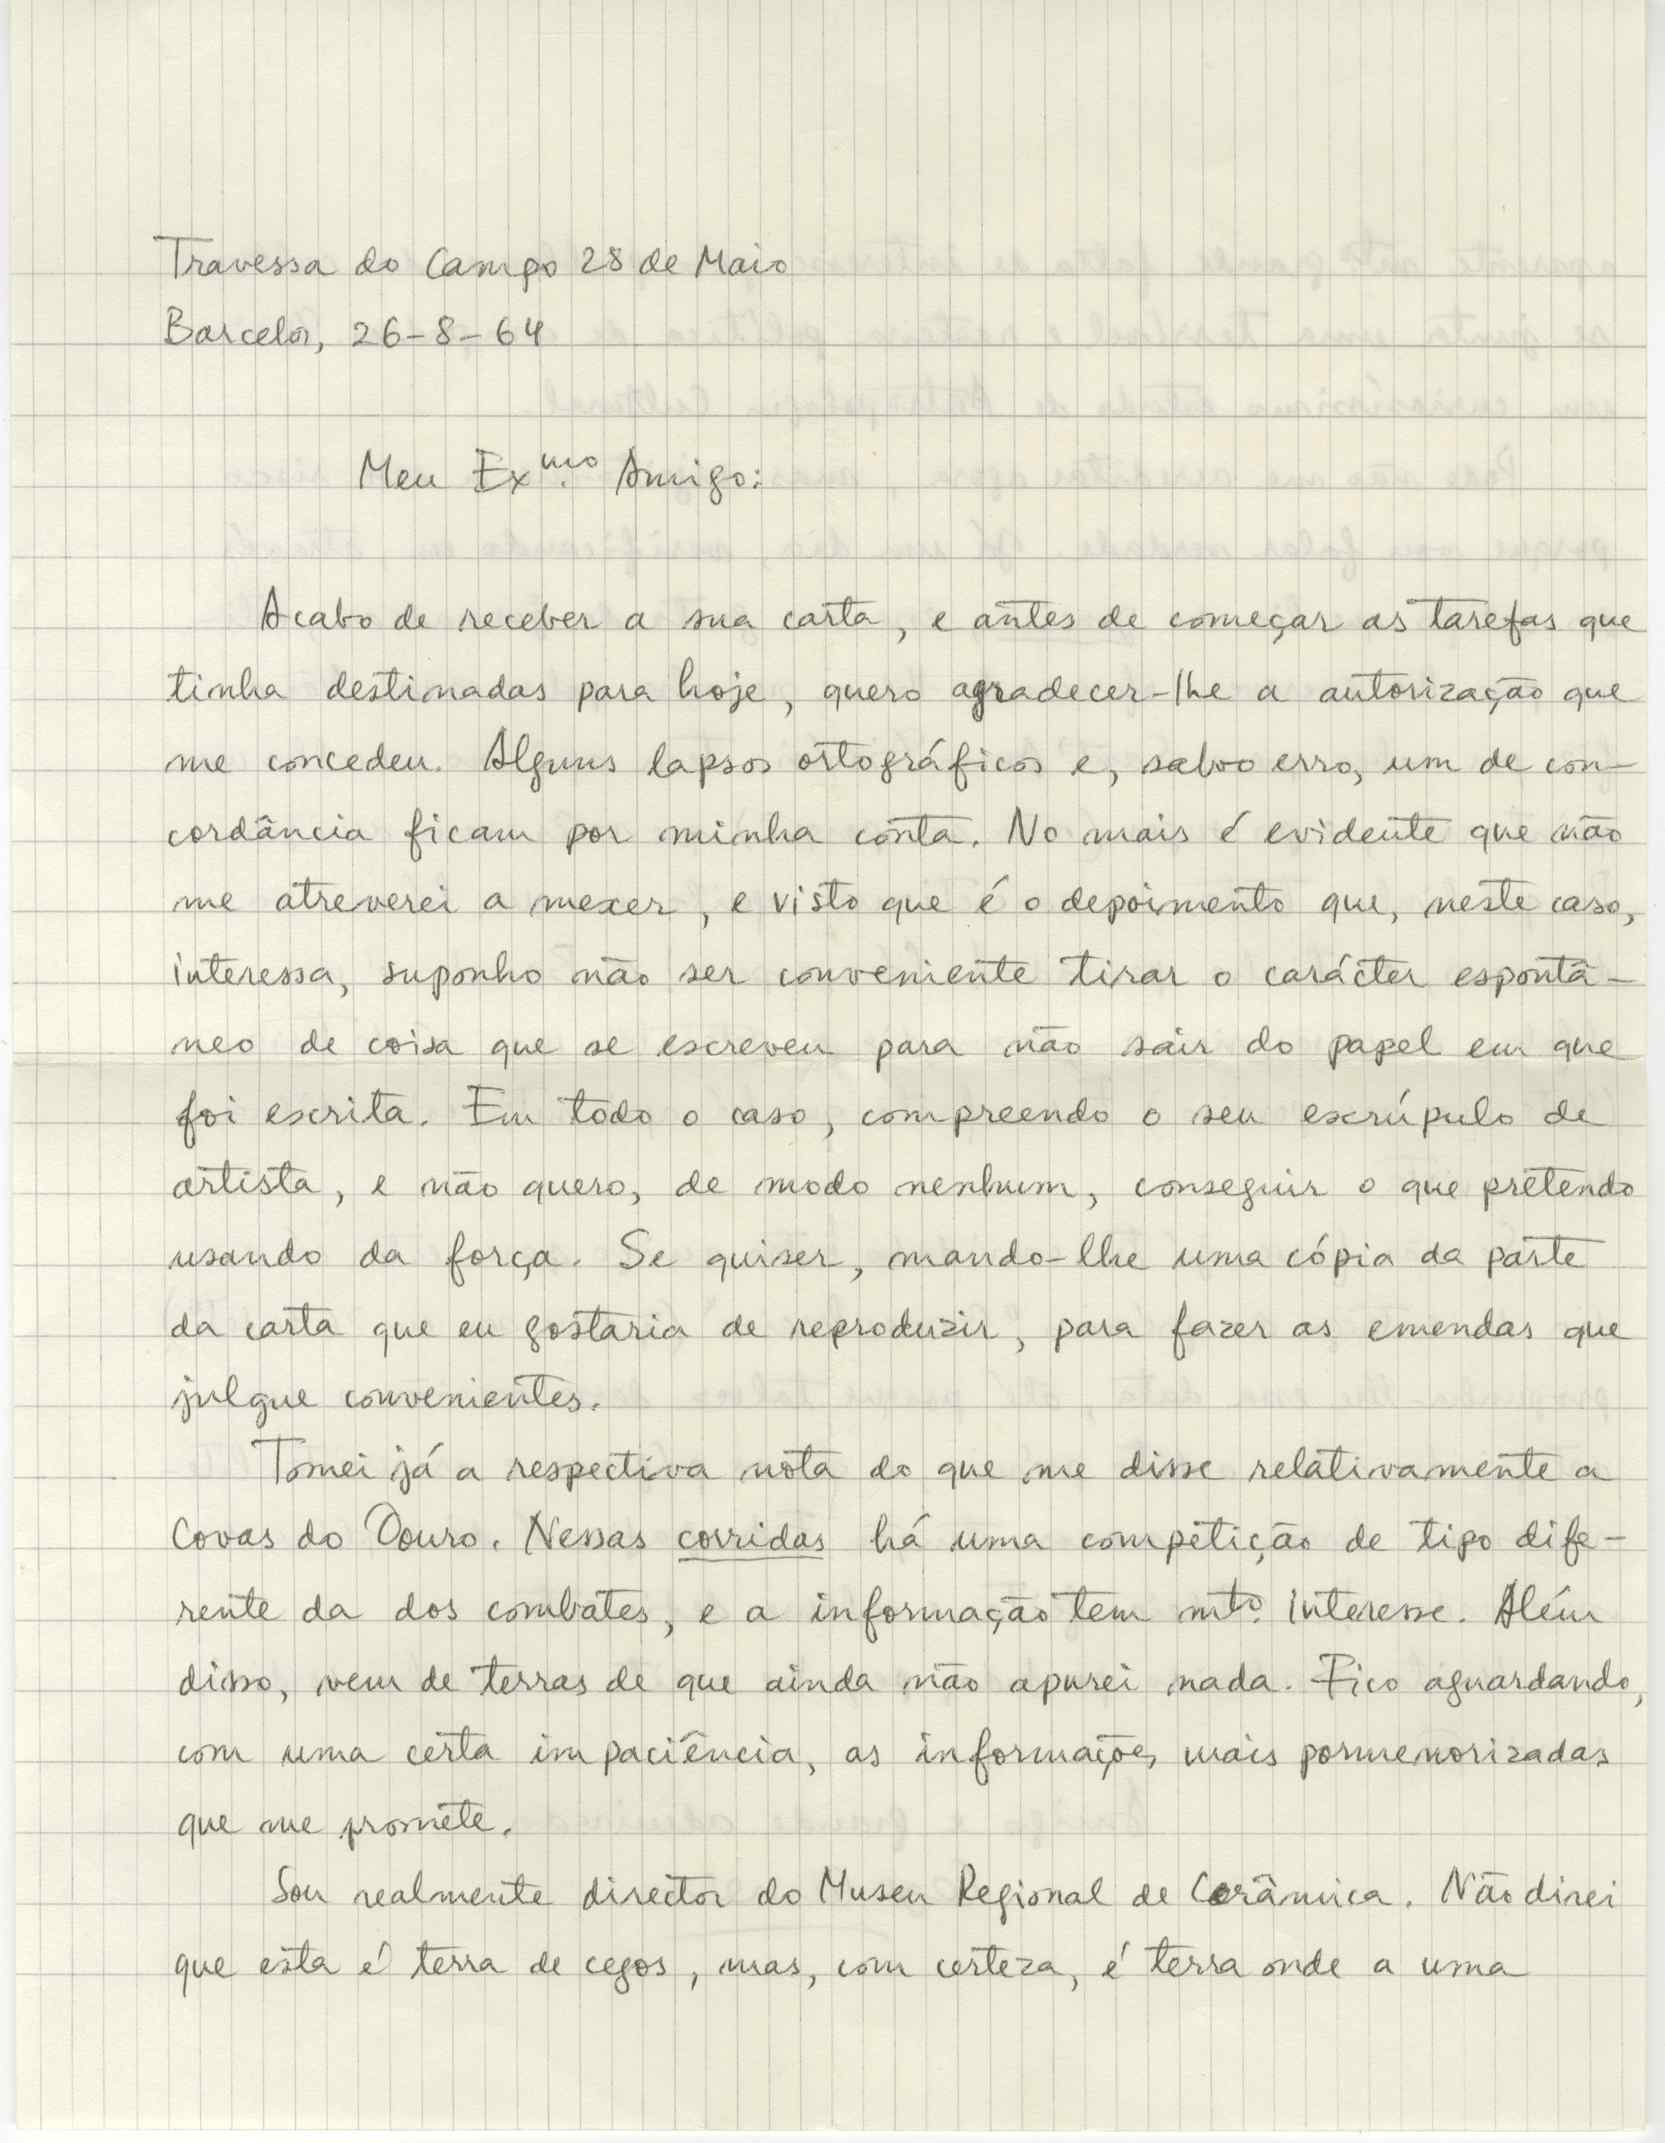 Travessa do Campo 28 de Maio
Barcelos, 26-8-64
Meu Exmo. Amigo:
Acabo de receber a sua carta, e antes de começar as tarefas que
tinha destinadas para hoje, quero agradecer-lhe a autorização que
me concedeu. Alguns lapsos ortográficos e, salvo erro, um de con-
cordância ficam por minha conta. No mais é evidente que não
me atreverei a mexer, e visto que é o depoimento que, neste caso,
interessa, suponho não ser conveniente tirar o carácter espontâ-
neo de coisa que se escreveu para não sair do papel em que
foi escrita. Em todo o caso, compreendo o seu escrúpulo de
artista, e não quero, de modo nenhum, conseguir o que pretendo
usando da força. Se quiser, mando-lhe uma cópia da parte
da carta que eu gostaria de reproduzir, para fazer as emendas que
julgue convenientes.
Tomei já a respectiva nota do que me disse relativamente a
Covas do Douro. Nessas corridas há uma competição de tipo dife-
rente da dos combates, e a informação tem mto. interesse. Além
disso, vem de terras de que ainda não apurei nada. Fico aguardando,
com uma certa impaciência, as informações mais pormenorizadas
que me promete.
Sou realmente director do Museu Regional de Cerâmica. Não direi
que esta é terra de cegos, mas, com certeza, é terra onde a uma